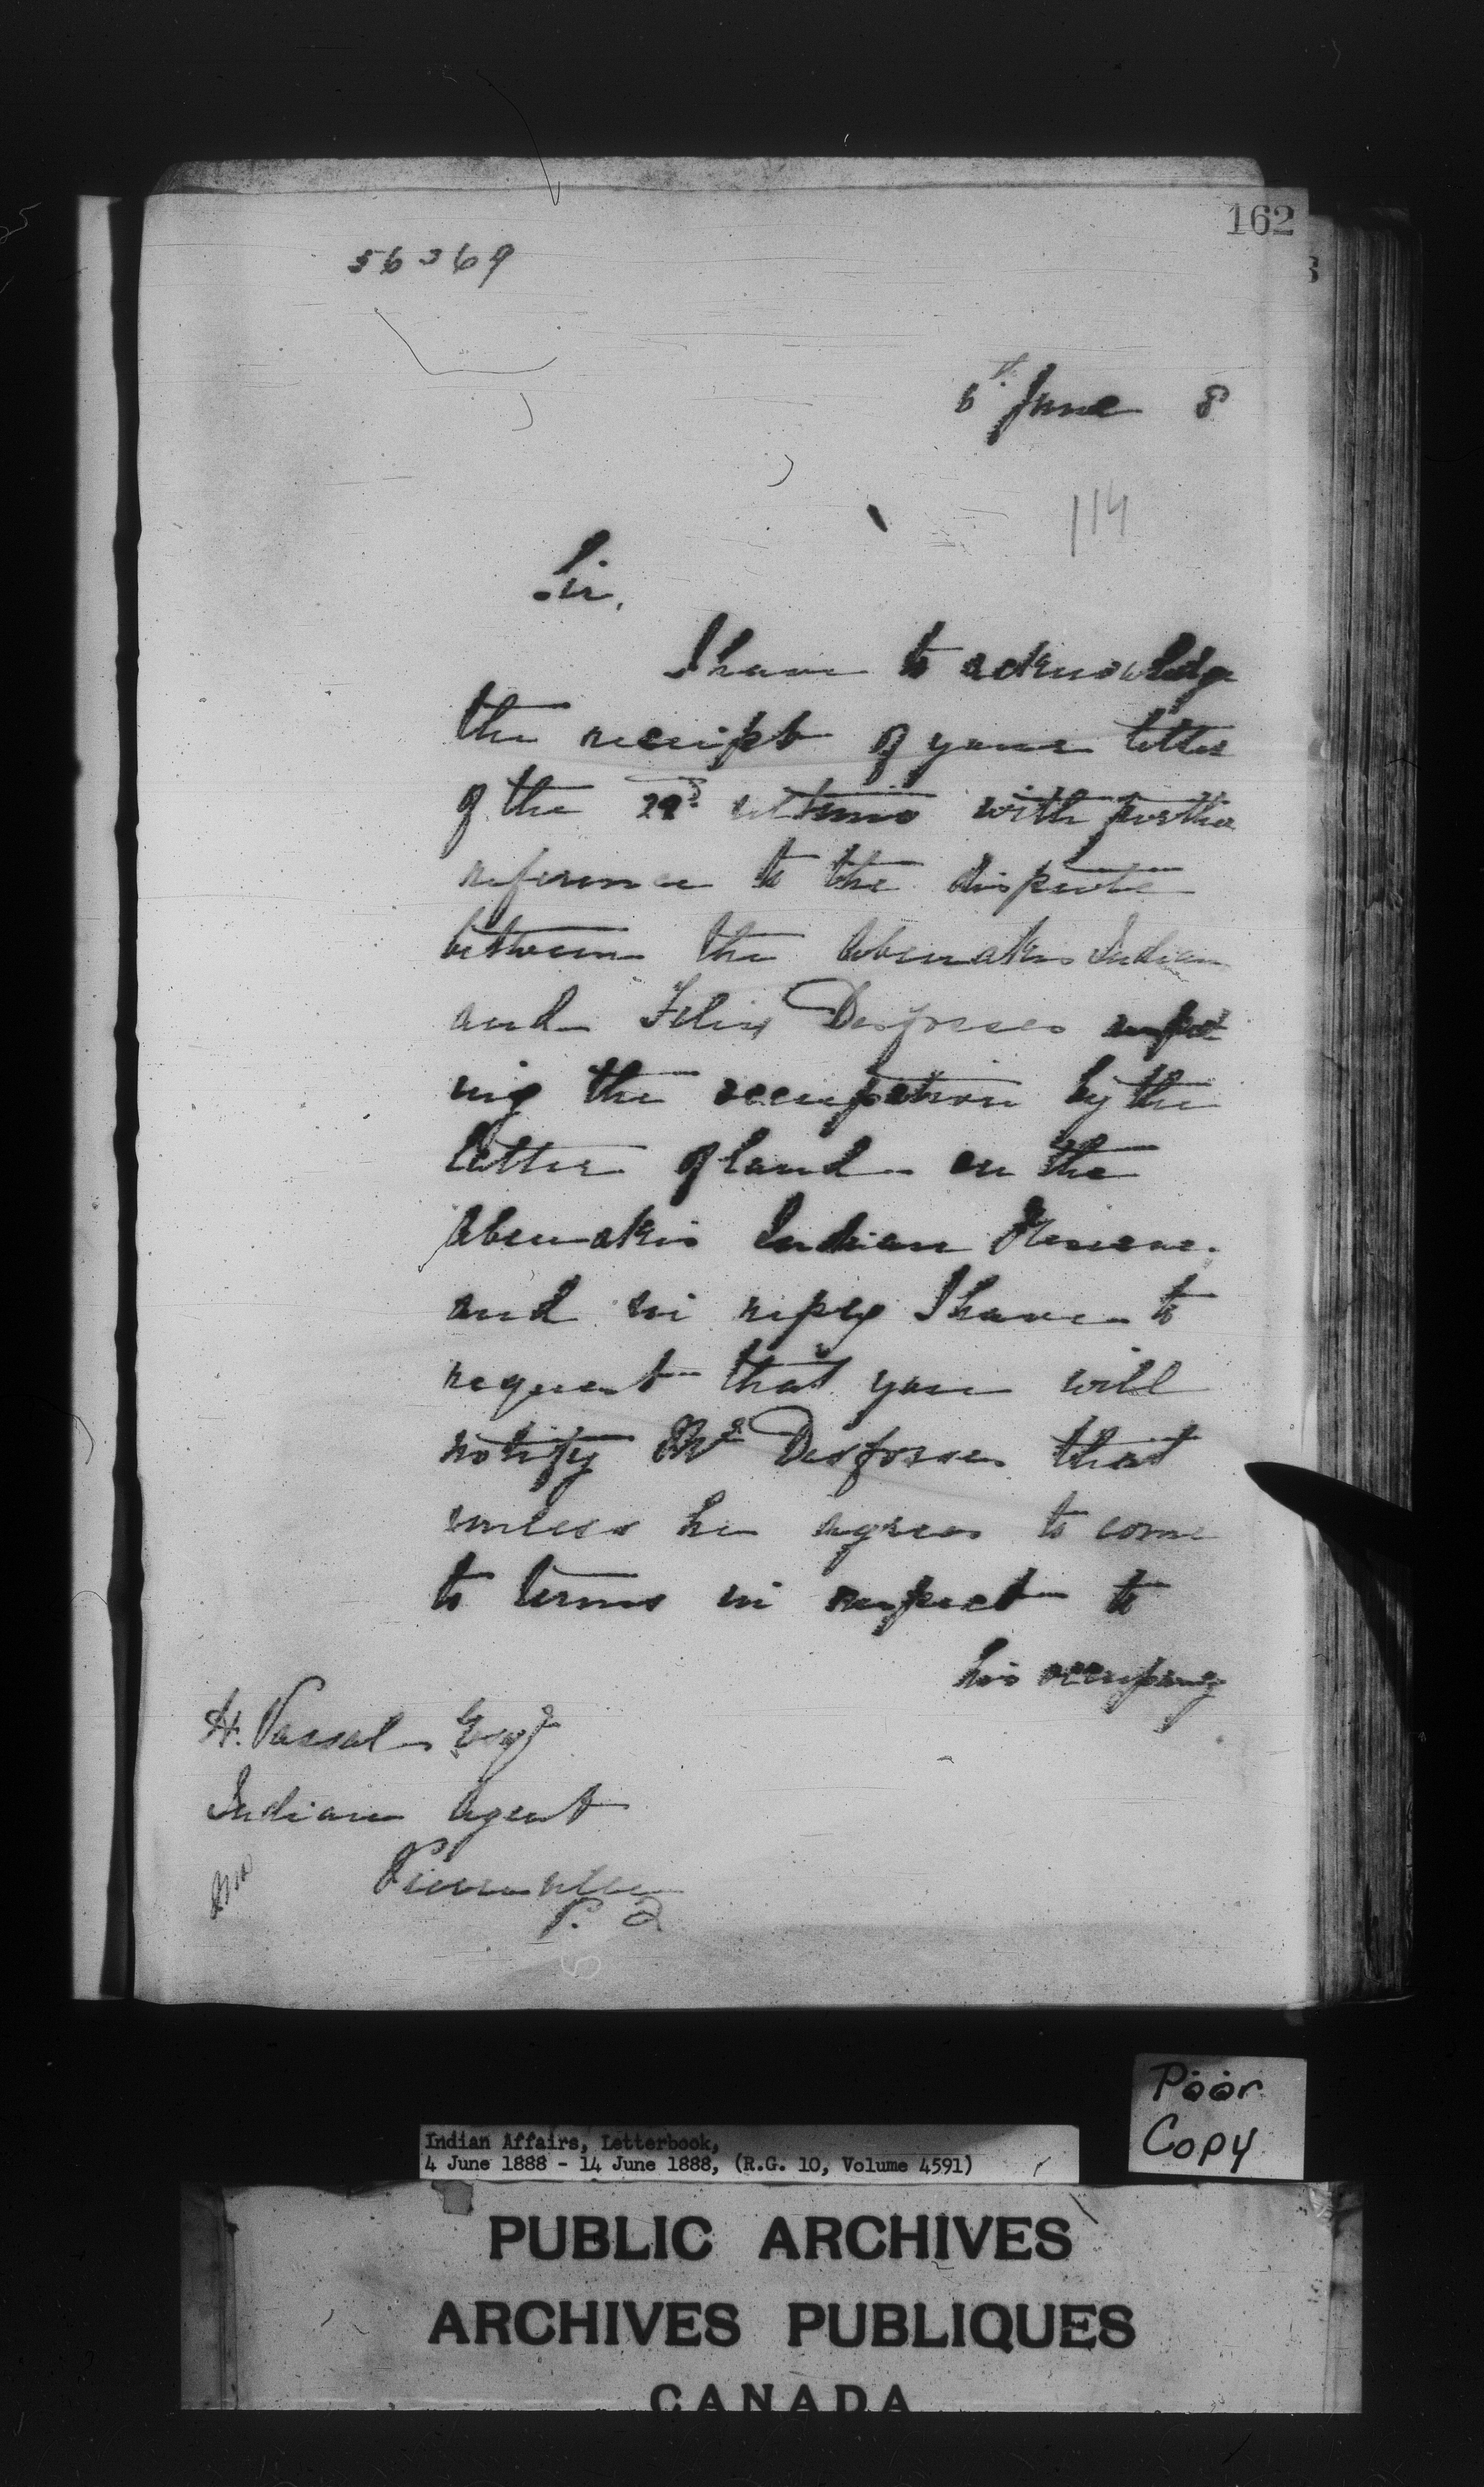 162
56369
6th June 8
114
Sir,
I have to acknowledge
the receipt of your letter
of the ultimo with further
reference to the dispute
between the Abenakis Indian
and Felix Desfosses respect
ing the occupation by the
latter of land on the
Abenakis Indian Reserve,
and in reply I have to
request that you will
notify Mr Desfosses that
unless he agrees to come
to terms in respect to
his occupancy
H. Vassal Esqr
Indian Agent
Pierreville
P. Q
Poor
Copy
Indian Affairs, Letterbook,
4 June 1888 - 14 June 1888, (R.G. 10, Volume 4591)
PUBLIC ARCHIVES
ARCHIVES PUBLIQUES
CANADA